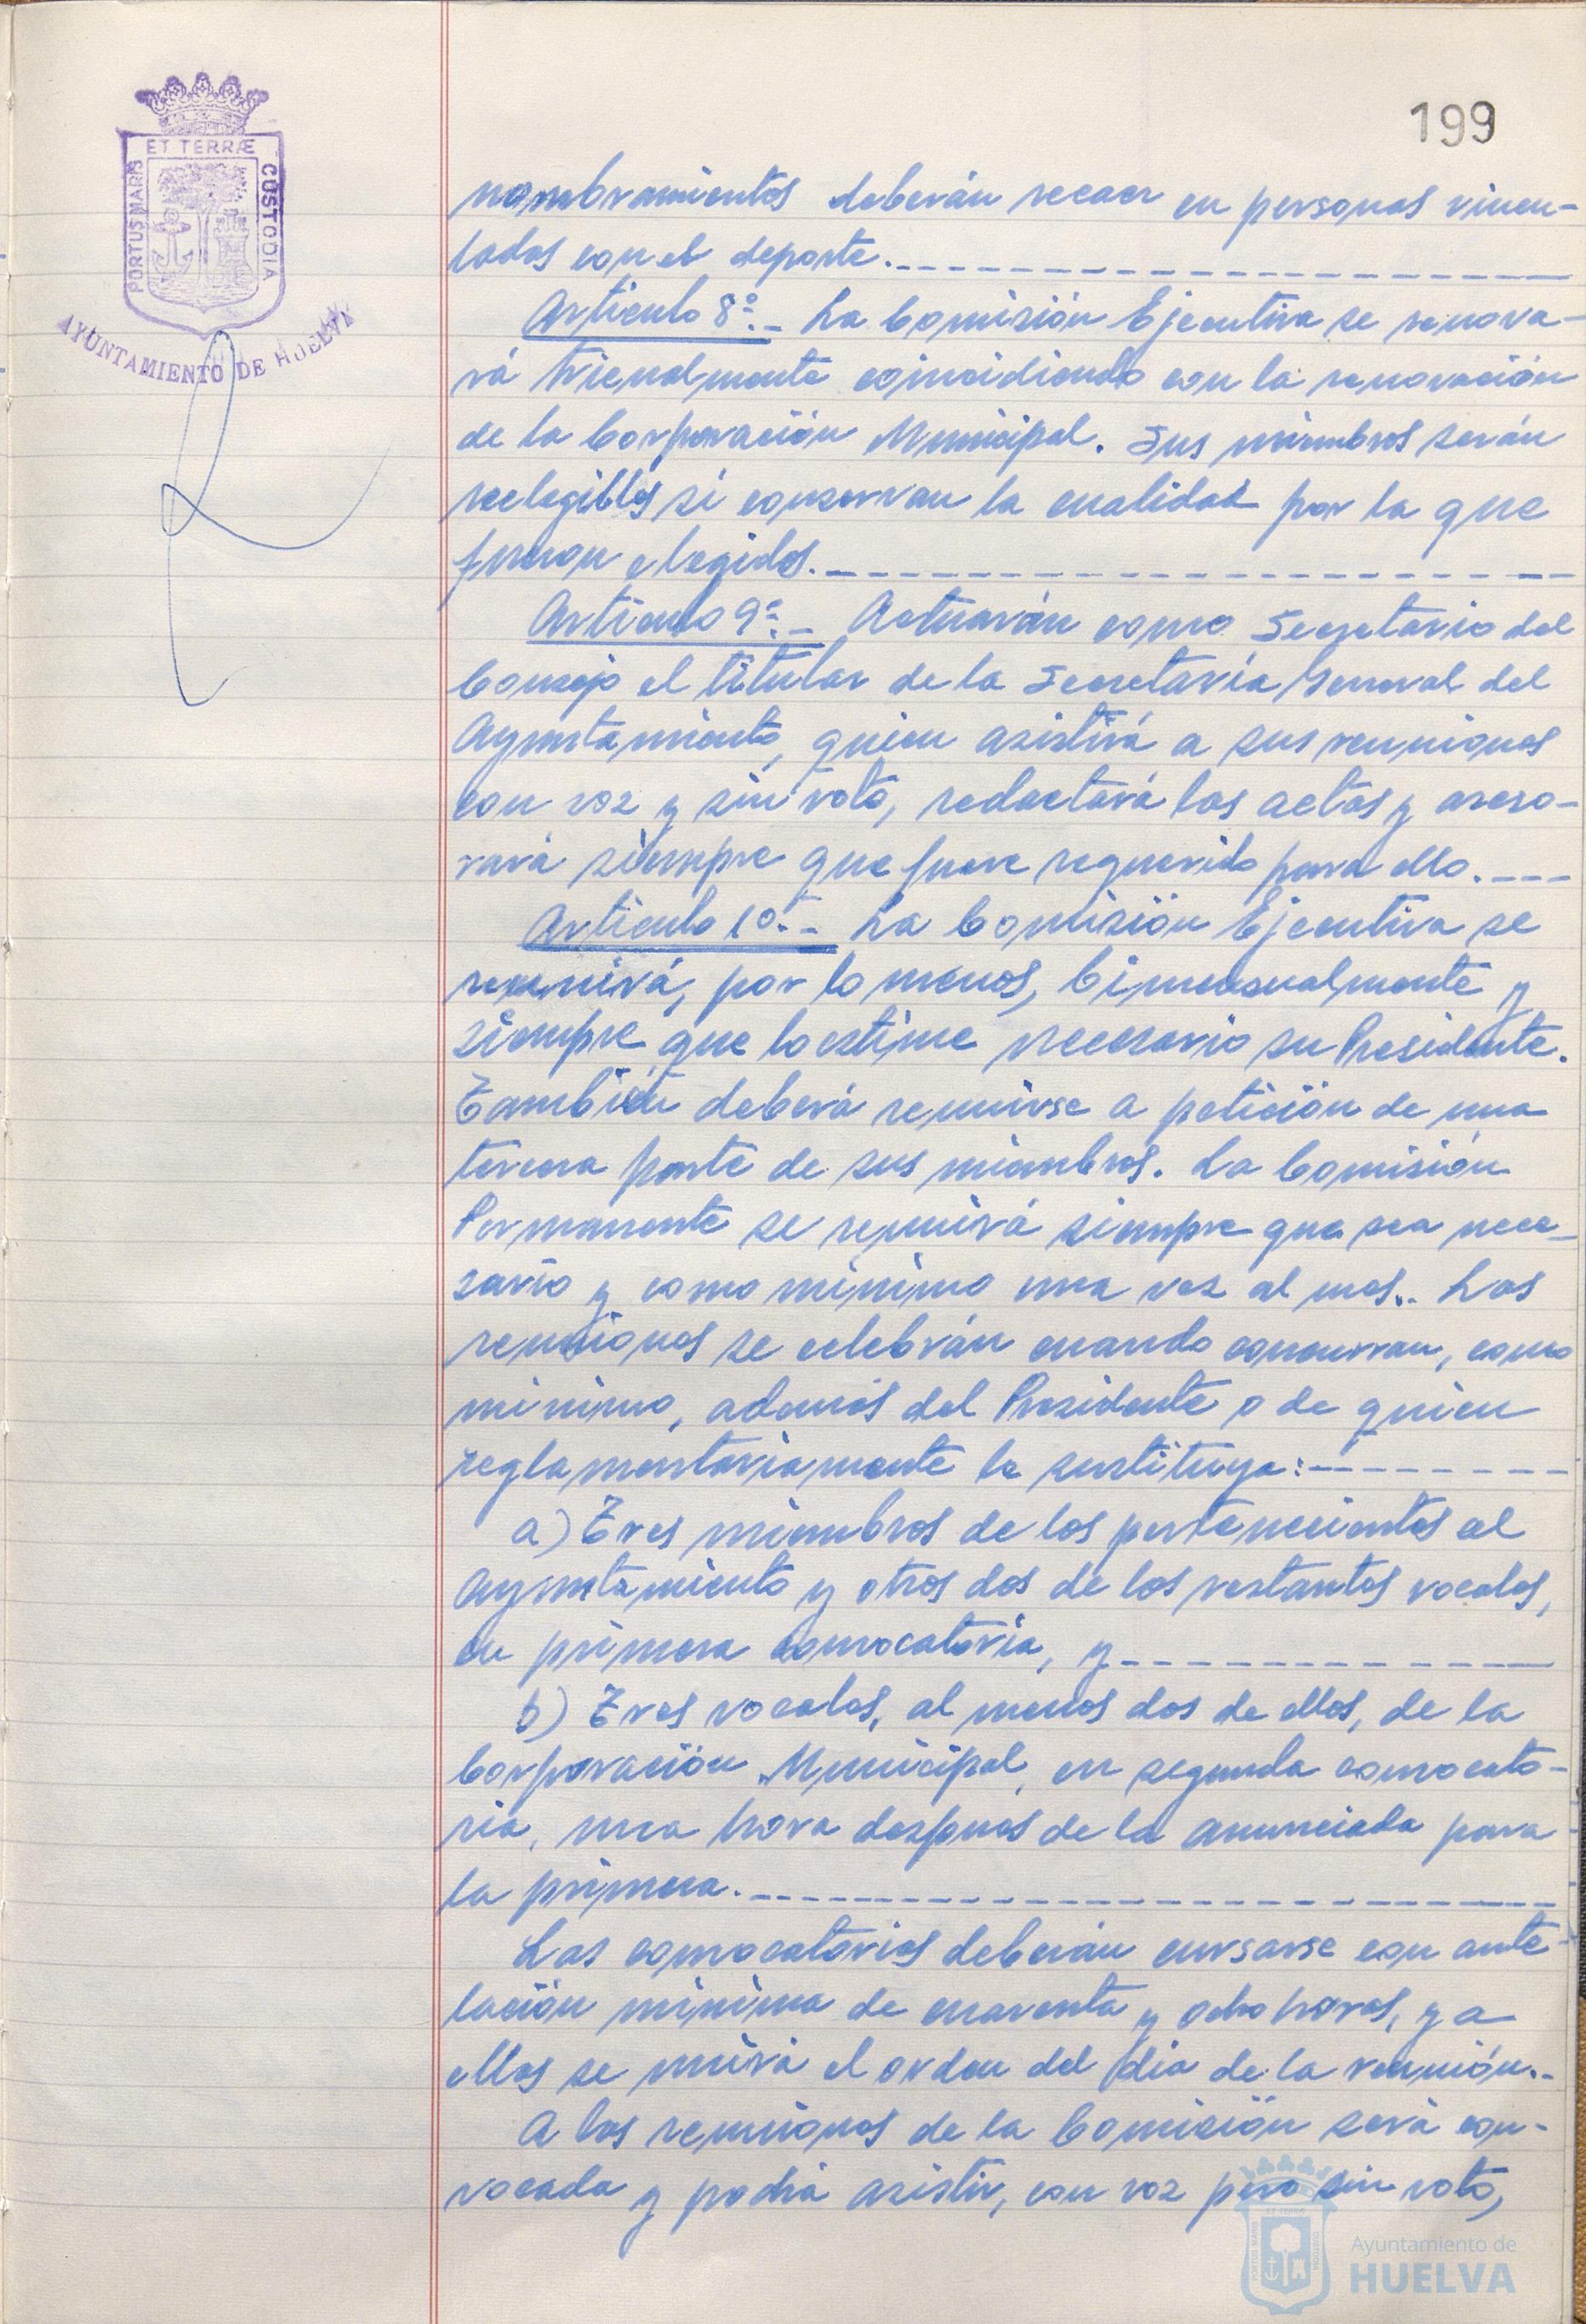 199
ET TERRÆ
PORTUS MARIS
CUSTODIA
AYUNTAMIENTO DE HUELVA
nombramientos deberán recaer en personas vincu-
ladas con el deporte.
Artículo 8º.- La Comisión Ejecutiva se renova-
rá trienalmente coincidiendo con la renovación
de la Corporación Municipal. Sus miembros serán
reelegibles si conservan la cualidad por la que
fueron elegidos.
Artículo 9º.- Actuarán como Secretario del
Consejo el titular de la Secretaría General del
Ayuntamiento, quien asistirá a sus reuniones
con voz y sin voto, redactará las actas y aseso-
rará siempre que fuere requerido para ello.
Artículo 10º.- La Comisión Ejecutiva se
reunirá, por lo menos, bimensualmente y
siempre que lo estime necesario su Presidente.
También deberá reunirse a petición de una
tercera parte de sus miembros. La Comisión
Permanente se reunirá siempre que sea nece-
sario y como mínimo una vez al mes.. Las
reuniones se celebrán cuando concurran, como
mínimo, además del Presidente o de quien
reglamentariamente le sustituya:
a) Tres miembros de los pertenecientes al
Ayuntamiento y otros dos de los restantes vocales,
en primera convocatoria, y
b) Tres vocales, al menos dos de ellos, de la
Corporación Municipal, en segunda convocato-
ria, una hora después de la anunciada para
la primera.
Las convocatorias deberán cursarse con ante-
lación mínima de cuarenta y ocho horas, y a
ellas se unirá el orden del día de la reunión.-
A las reuniones de la Comisión será con-
vocada y podrá asistir, con voz pero sin voto,
Ayuntamiento de
HUELVA